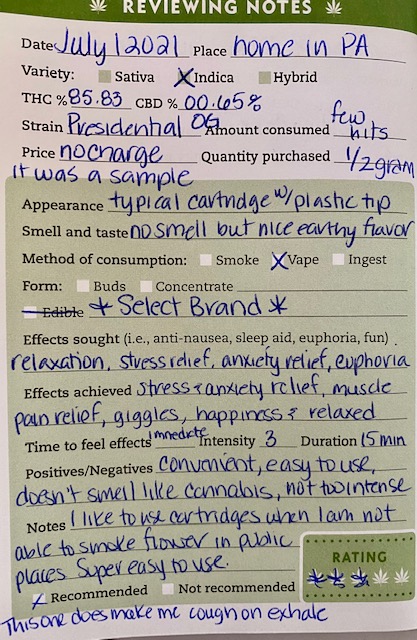 REVIEWING NOTES
Date July 1 2021 Place home in PA
Variety: Sativa Indica Hybrid
THC % 85.83 CBD % 00.65%
Strain Presidential OG Amount consumed few hits
Price no charge Quantity purchased 1/2 gram
it was a sample
Appearance typical cartridge w/ plastic tip
Smell and taste no smell but nice earthy flavor
Method of consumption: Smoke Vape Ingest
Form: Buds Concentrate
Edible * Select Brand *
Effects sought (i.e., anti-nausea, sleep aid, euphoria, fun)
relaxation, stress relief, anxiety relief, euphoria
Effects achieved stress & anxiety relief, muscle
pain relief, giggles, happiness & relaxed
Time to feel effects Immediate Intensity 3 Duration 15 min
Positives/Negatives Convenient, easy to use,
doesn't smell like cannabis, not too intense
Notes I like to use cartridges when I am not
able to smoke flower in public
places. Super easy to use.
RATING
Recommended Not recommended
This one does make me cough on exhale